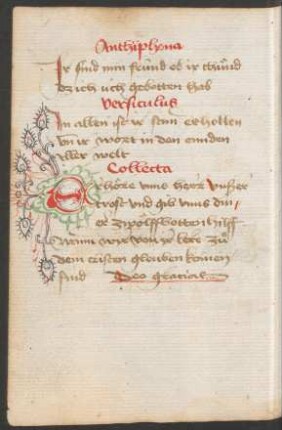 Anthiphona
Ir sind min fründ ob ir thünd
dz ich üch gebotten hab
Versiculus
In allen ist ir stim erhollen
Vn ir wort in den ennden
aller welt
Collecta
Erhöre vnns herr vnser
trost vnd gib vnns din
er zwölffbotten hilff
Wann wir von ir lere zü
dem cristen glouben komen
sind Deo gracias